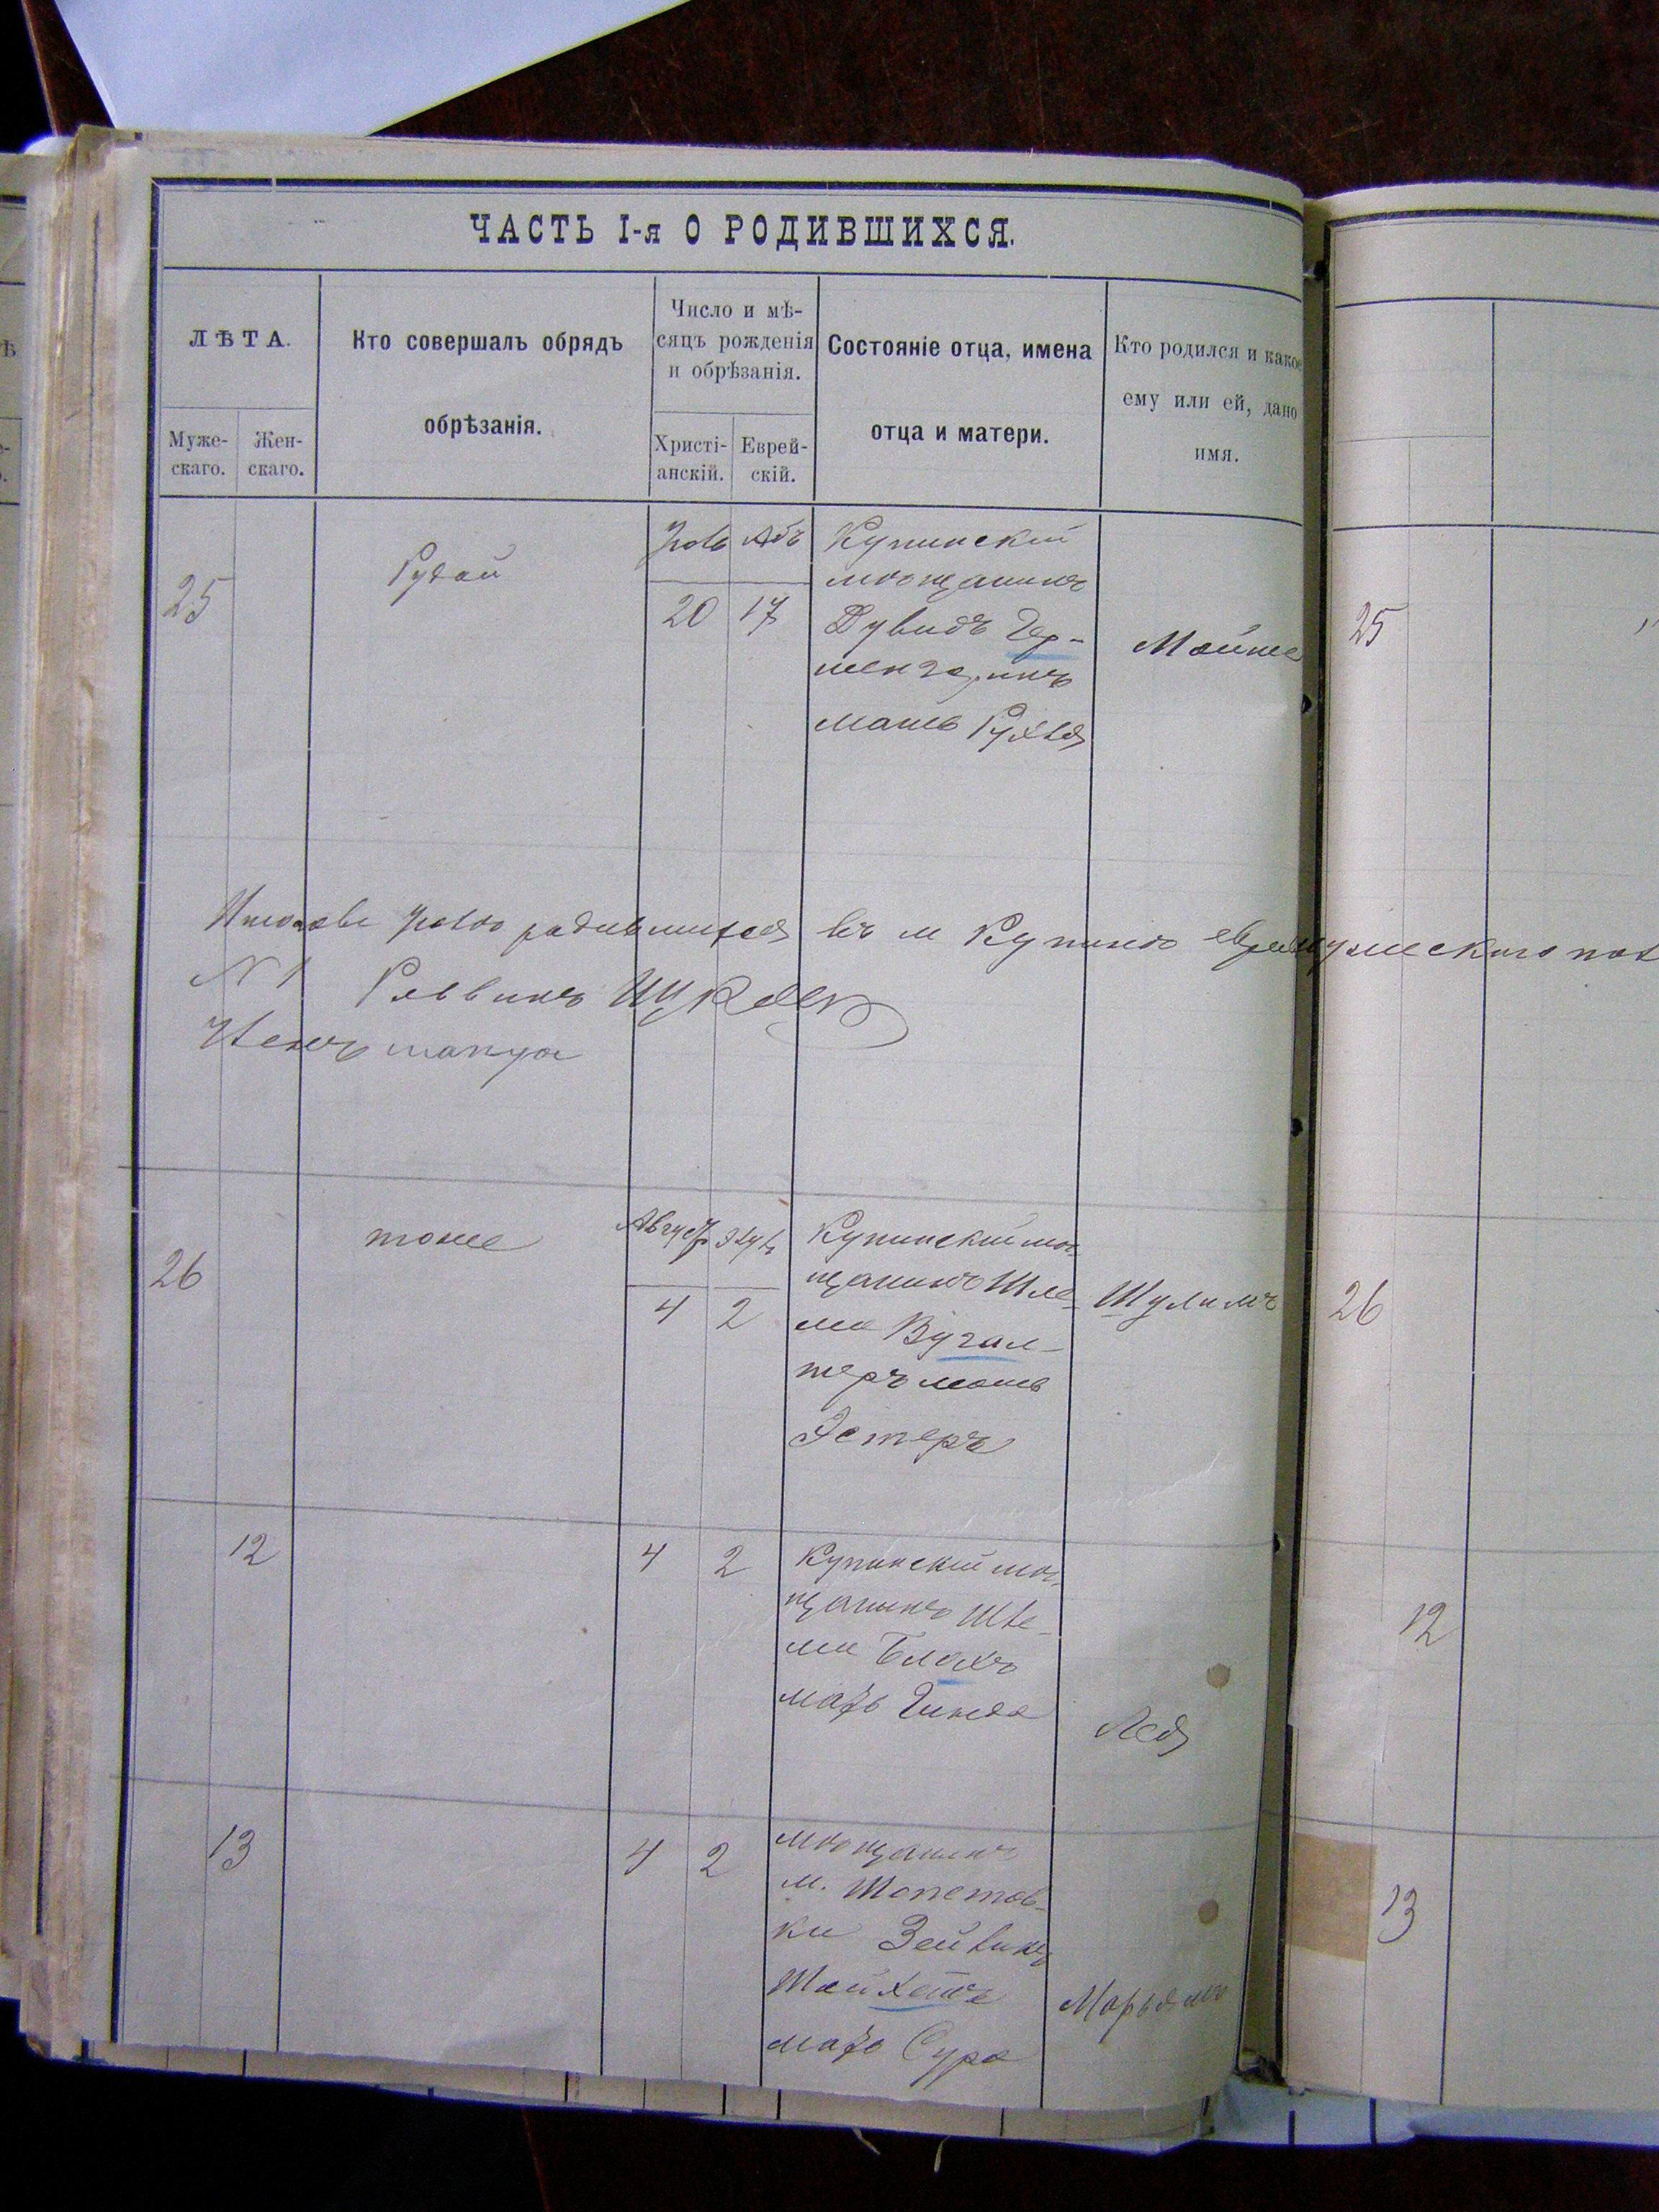 ЧАСТЬ I-я О РОДИВШИХСЯ.
ЛѢТА.
Муже-
скаго.
Жен-
скаго.
Кто совершалъ обрядъ
обрѣзанія.
Число и мѣ-
сяцъ рожденія
и обрѣзанія.
Христі-
анскій.
Еврей-
скій.
Состояніе отца, имена
отца и матери.
Кто родился и какое
ему или ей, дано
имя.
25
Рудой
Іюль Абъ
20 17
Купинскій
мѣщанинъ
Дувидъ Гер-
шензонъ
мать Рухля
Мойше
25
Іюлѣ родившихся въ м Купинѣ
№ 1 Раввинъ
Членъ
26
тоже
Август Элулъ
4 2
Купинскій мѣ-
щанинъ Шле-
ма Бугал-
теръ мать
Эстеръ
Шулимъ
26
12
4 2
Купинскій мѣ-
щанинъ Шле-
ма Блохъ
мать Гинда
Лея
12
13
4 2
мѣщанинъ
м. Шепетов-
ки Зейвинъ
Шойхетъ
мать Сура
Марьямъ
13